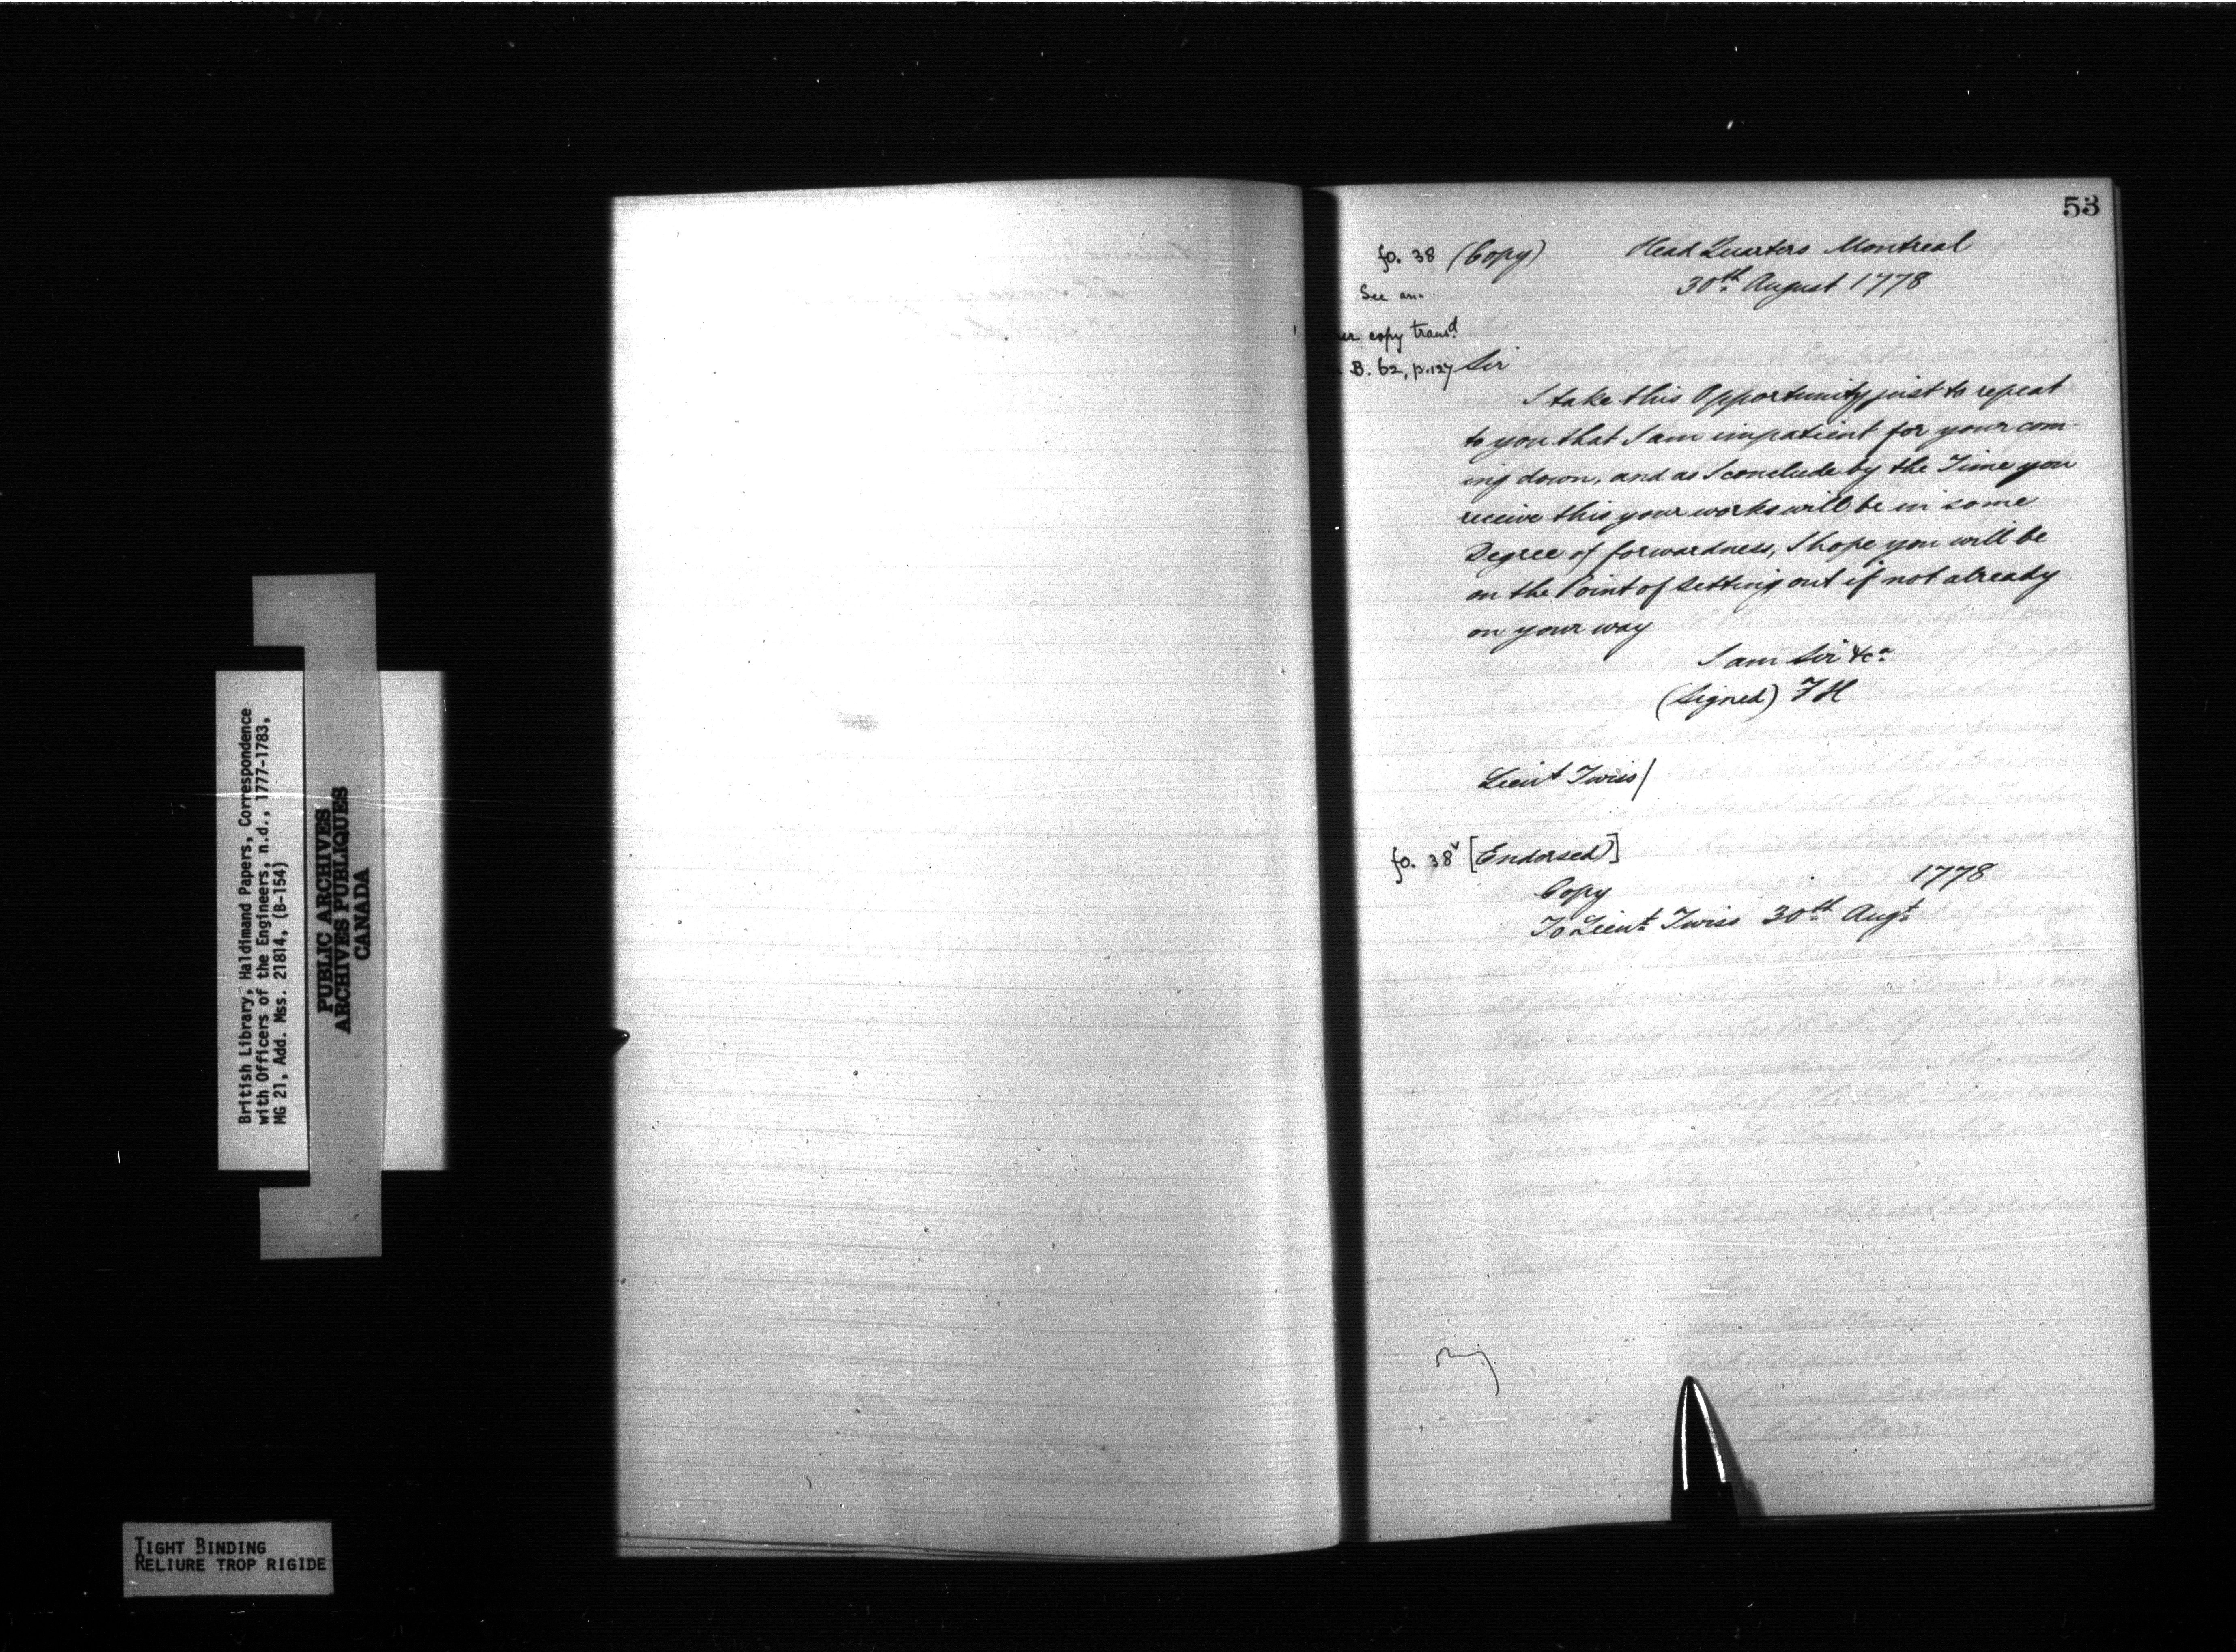 53
fo. 38 (Copy) Head Quarters Montreal
30th August 1778
See an-
copy transd
B. 62, p. 127
Sir
I take this Opportunity just to repeat
to you that I am impatient for your com-
ing down, and as I conclude by the Time you
receive this your works will be in some
Degree of forwardness, I hope you will be
on the Point of setting out if not already
on your way
I am Sir &ca
(Signed) F H
Lieut Twiss/
fo. 38v [Endorsed]
Copy 1778
To Lieut Twiss 30th Augt
British Library, Haldimand Papers, Correspondence
with Officers of the Engineers, n.d., 1777-1783,
MG 21, Add. Mss. 21814, (B-154)
PUBLIC ARCHIVES
ARCHIVES PUBLIQUES
CANADA
TIGHT BINDING
RELIURE TROP RIGIDE